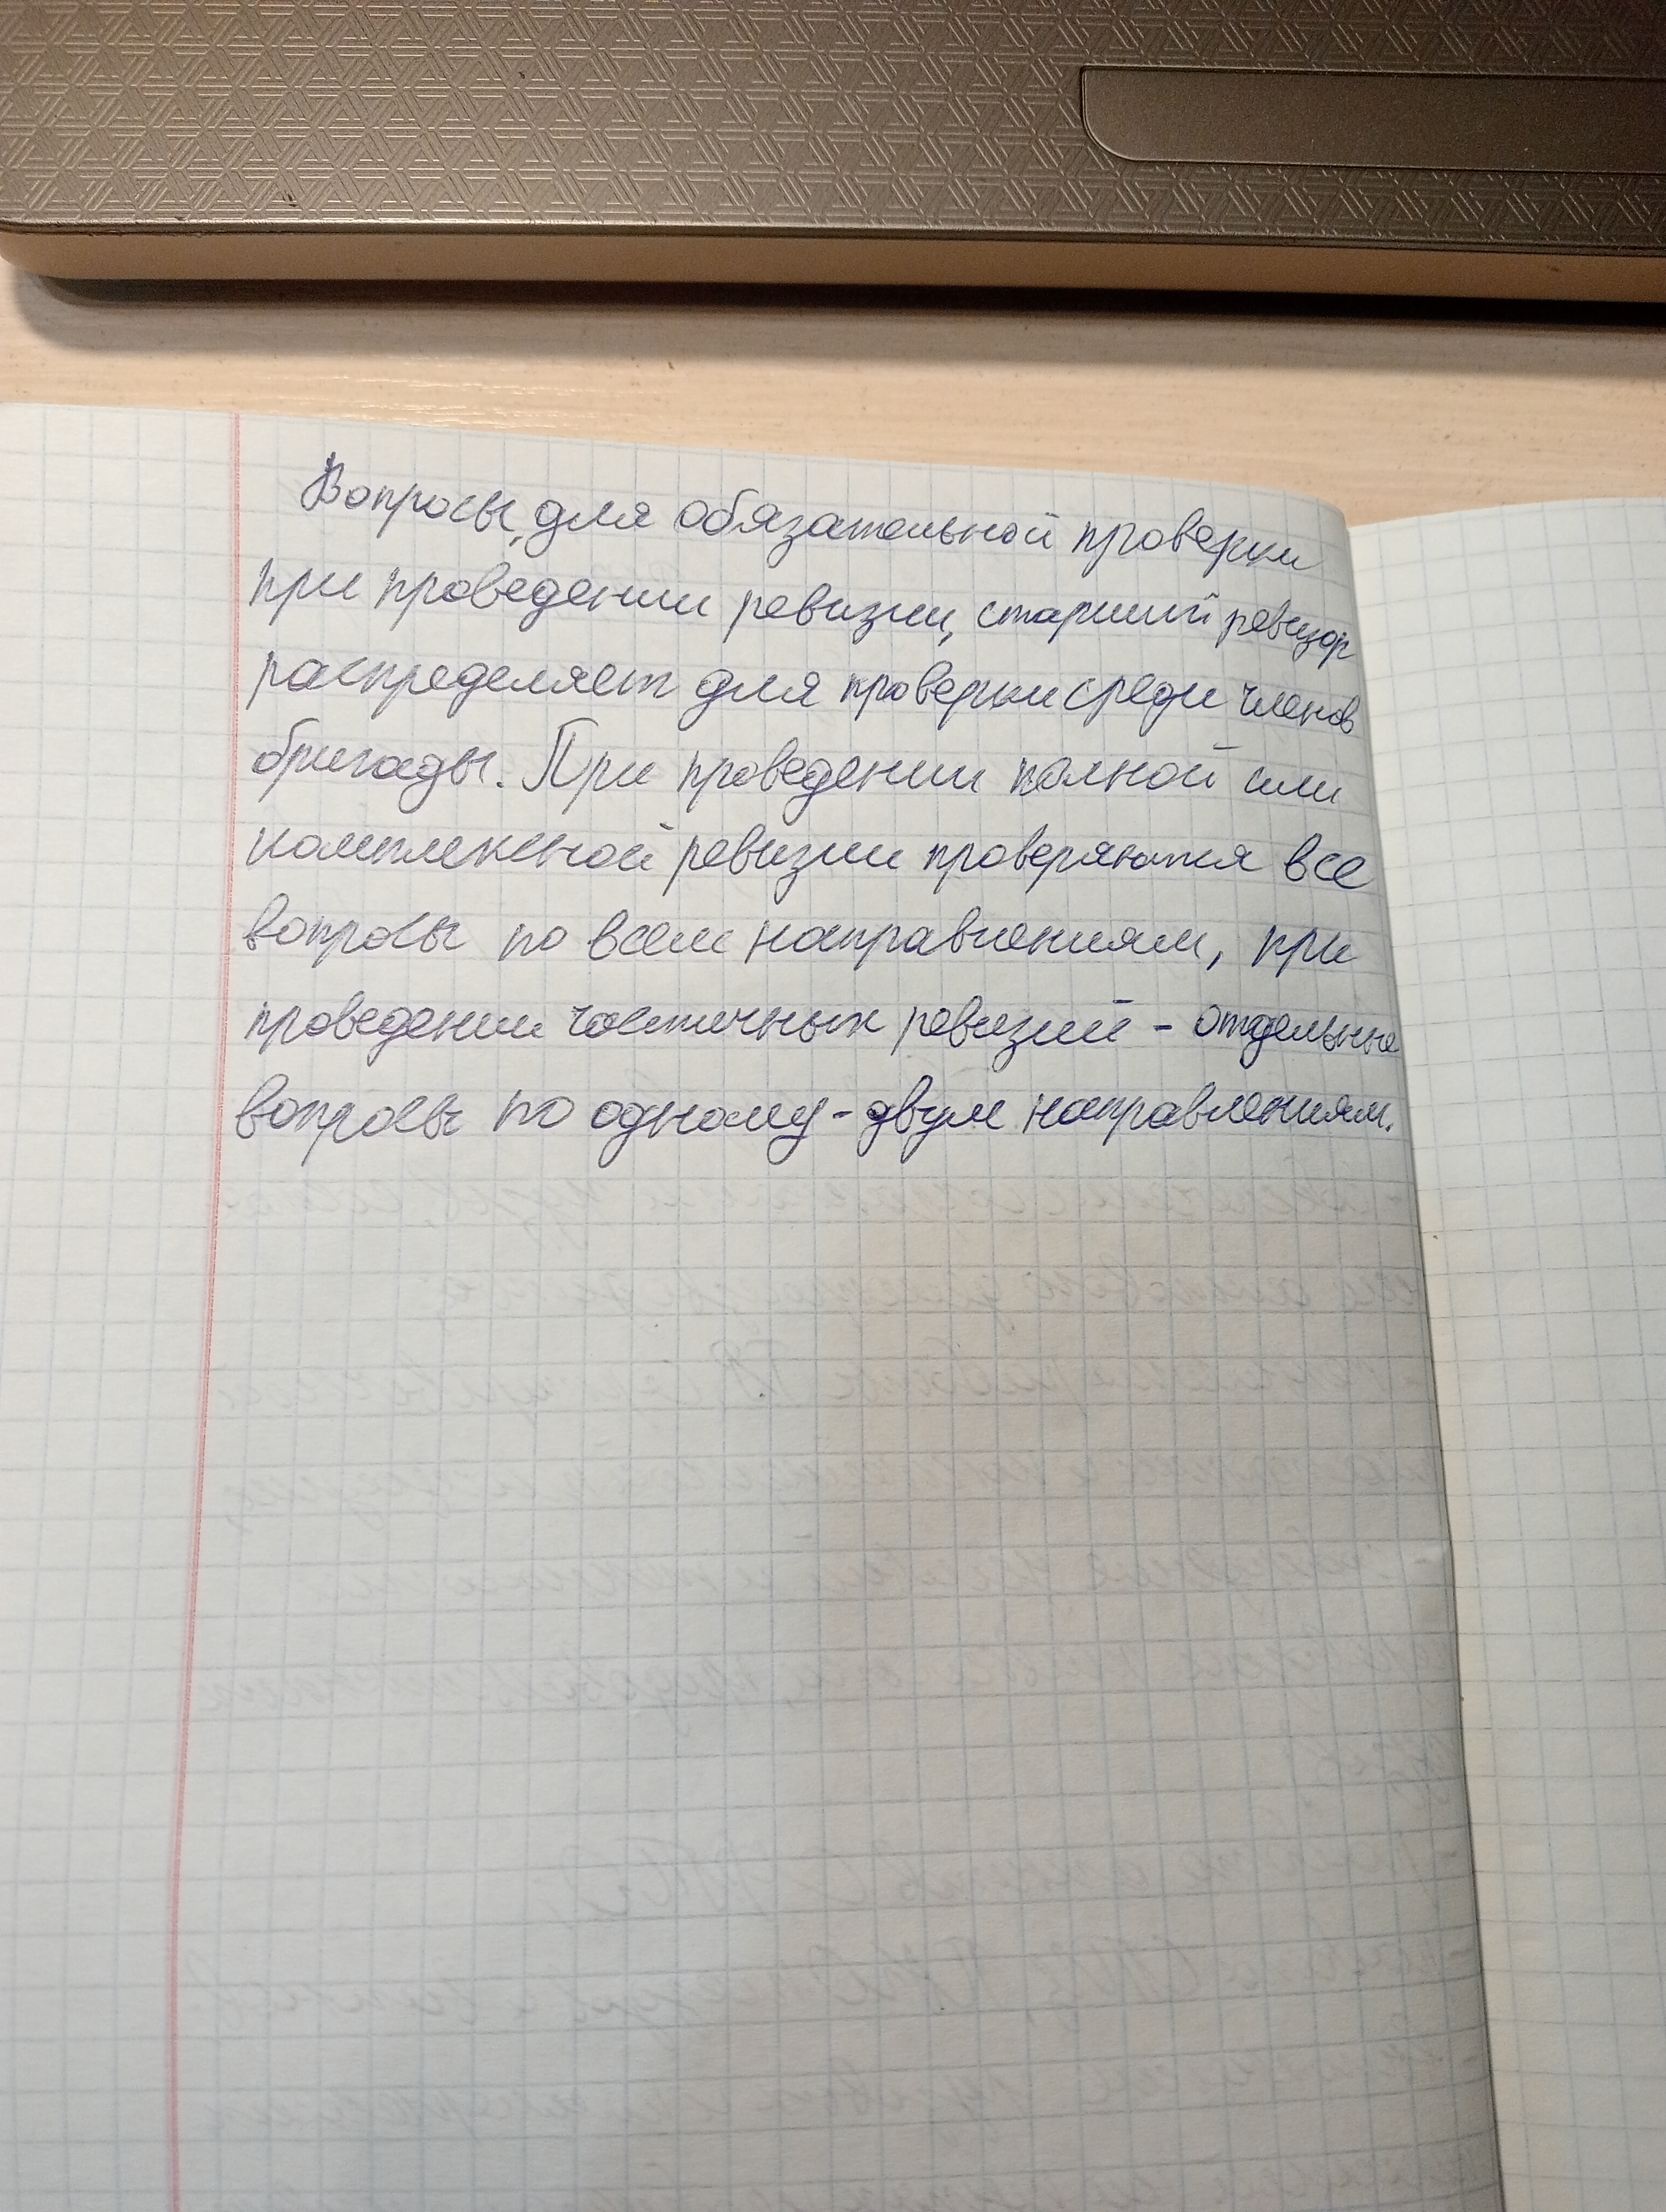 Вопросы, для обязательной проверки
при проведении ревизии, старший ревизор
распределяет для проверки среди членов
бригады. При проведении полной или
комплексной ревизии проверяются все
вопросы по всем направлениям, при
проведении частичных ревизий - отдельные
вопросы по одному - двум направлениям.